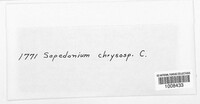 1771 Sepedonium chrysosp. C.
1008433